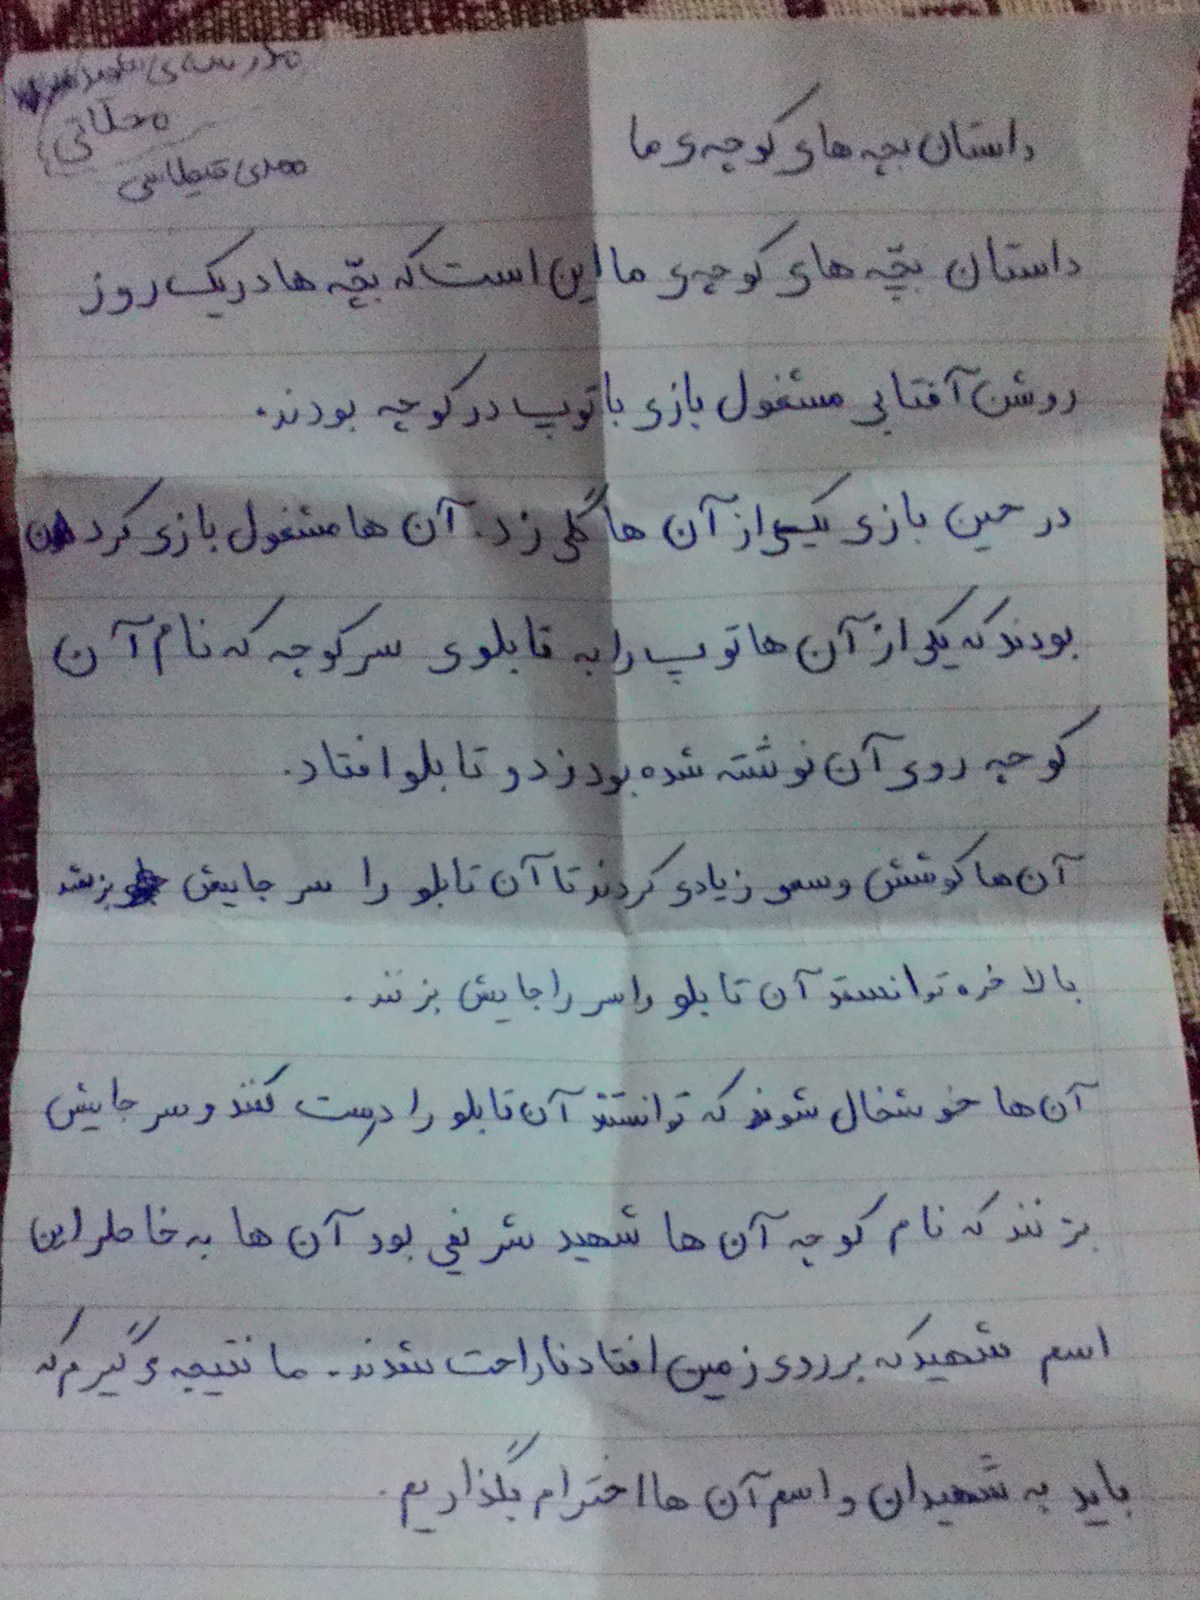 مدرسه‌ی شهید
محلاتی
مهدی قیطاسی
داستان بچه های کوچه‌ی ما
داستان بچّه های کوچه‌ی ما این است که بچّه ها در یک روز
روشن آفتابی مشغول بازی با توپ در کوچه بودند.
در حین بازی یکی از آن ها گلی زد. آن ها مشغول بازی کردن
بودند که یکی از آن ها توپ را به تابلوی سر کوچه که نام آن
کوچه روی آن نوشته شده بود زد و تابلو افتاد.
آن ها کوشش و سعی زیادی کردند تا آن تابلو را سر جایش بزنند
بالاخره توانستند آن تابلو را سر را جایش بزنند.
آن ها خوشخال شوند که توانستند آن تابلو را درست کنند و سر جایش
بزنند که نام کوچه آن ها شهید شریفی بود آن ها به خاطر این
اسم شهید که بر روی زمین افتاد ناراحت شدند. ما نتیجه می گیرم که
باید به شهیدان و اسم آن ها اخترام بگذاریم.